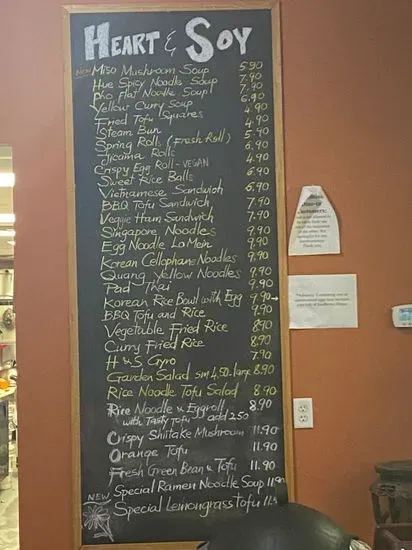 HEART & SOY
NEW Miso Mushroom Soup 5.90
Hue Spicy Noodle Soup 7.90
Pho Flat Noodle Soup 7.90
Yellow Curry Soup 6.90
Fried Tofu Squares 4.90
Steam Bun 4.90
Spring Rolls (Fresh Roll) 5.90
Jicama Rolls 6.90
Crispy Egg Roll - VEGAN 4.90
Sweet Rice Balls 6.90
Vietnamese Sandwich 6.90
BBQ Tofu Sandwich 7.90
Veggie Ham Sandwich 7.90
Singapore Noodles 9.90
Egg Noodle Lo Mein 9.90
Korean Cellophane Noodles 9.90
Quang Yellow Noodles 9.90
Pad Thai 9.90
Korean Rice Bowl with Egg 9.90
BBQ Tofu and Rice 9.90
Vegetable Fried Rice 8.90
Curry Fried Rice 8.90
H & S Gyro 7.90
Garden Salad sm 4.50 - large 8.90
Rice Noodle Tofu Salad 8.90
Rice Noodle & Eggroll 8.90
with Tasty Tofu add 2.50
Crispy Shiitake Mushroom 11.90
Orange Tofu 11.90
Fresh Green Bean & Tofu 11.90
Special Ramen Noodle Soup 11.90
NEW Special Lemongrass Tofu